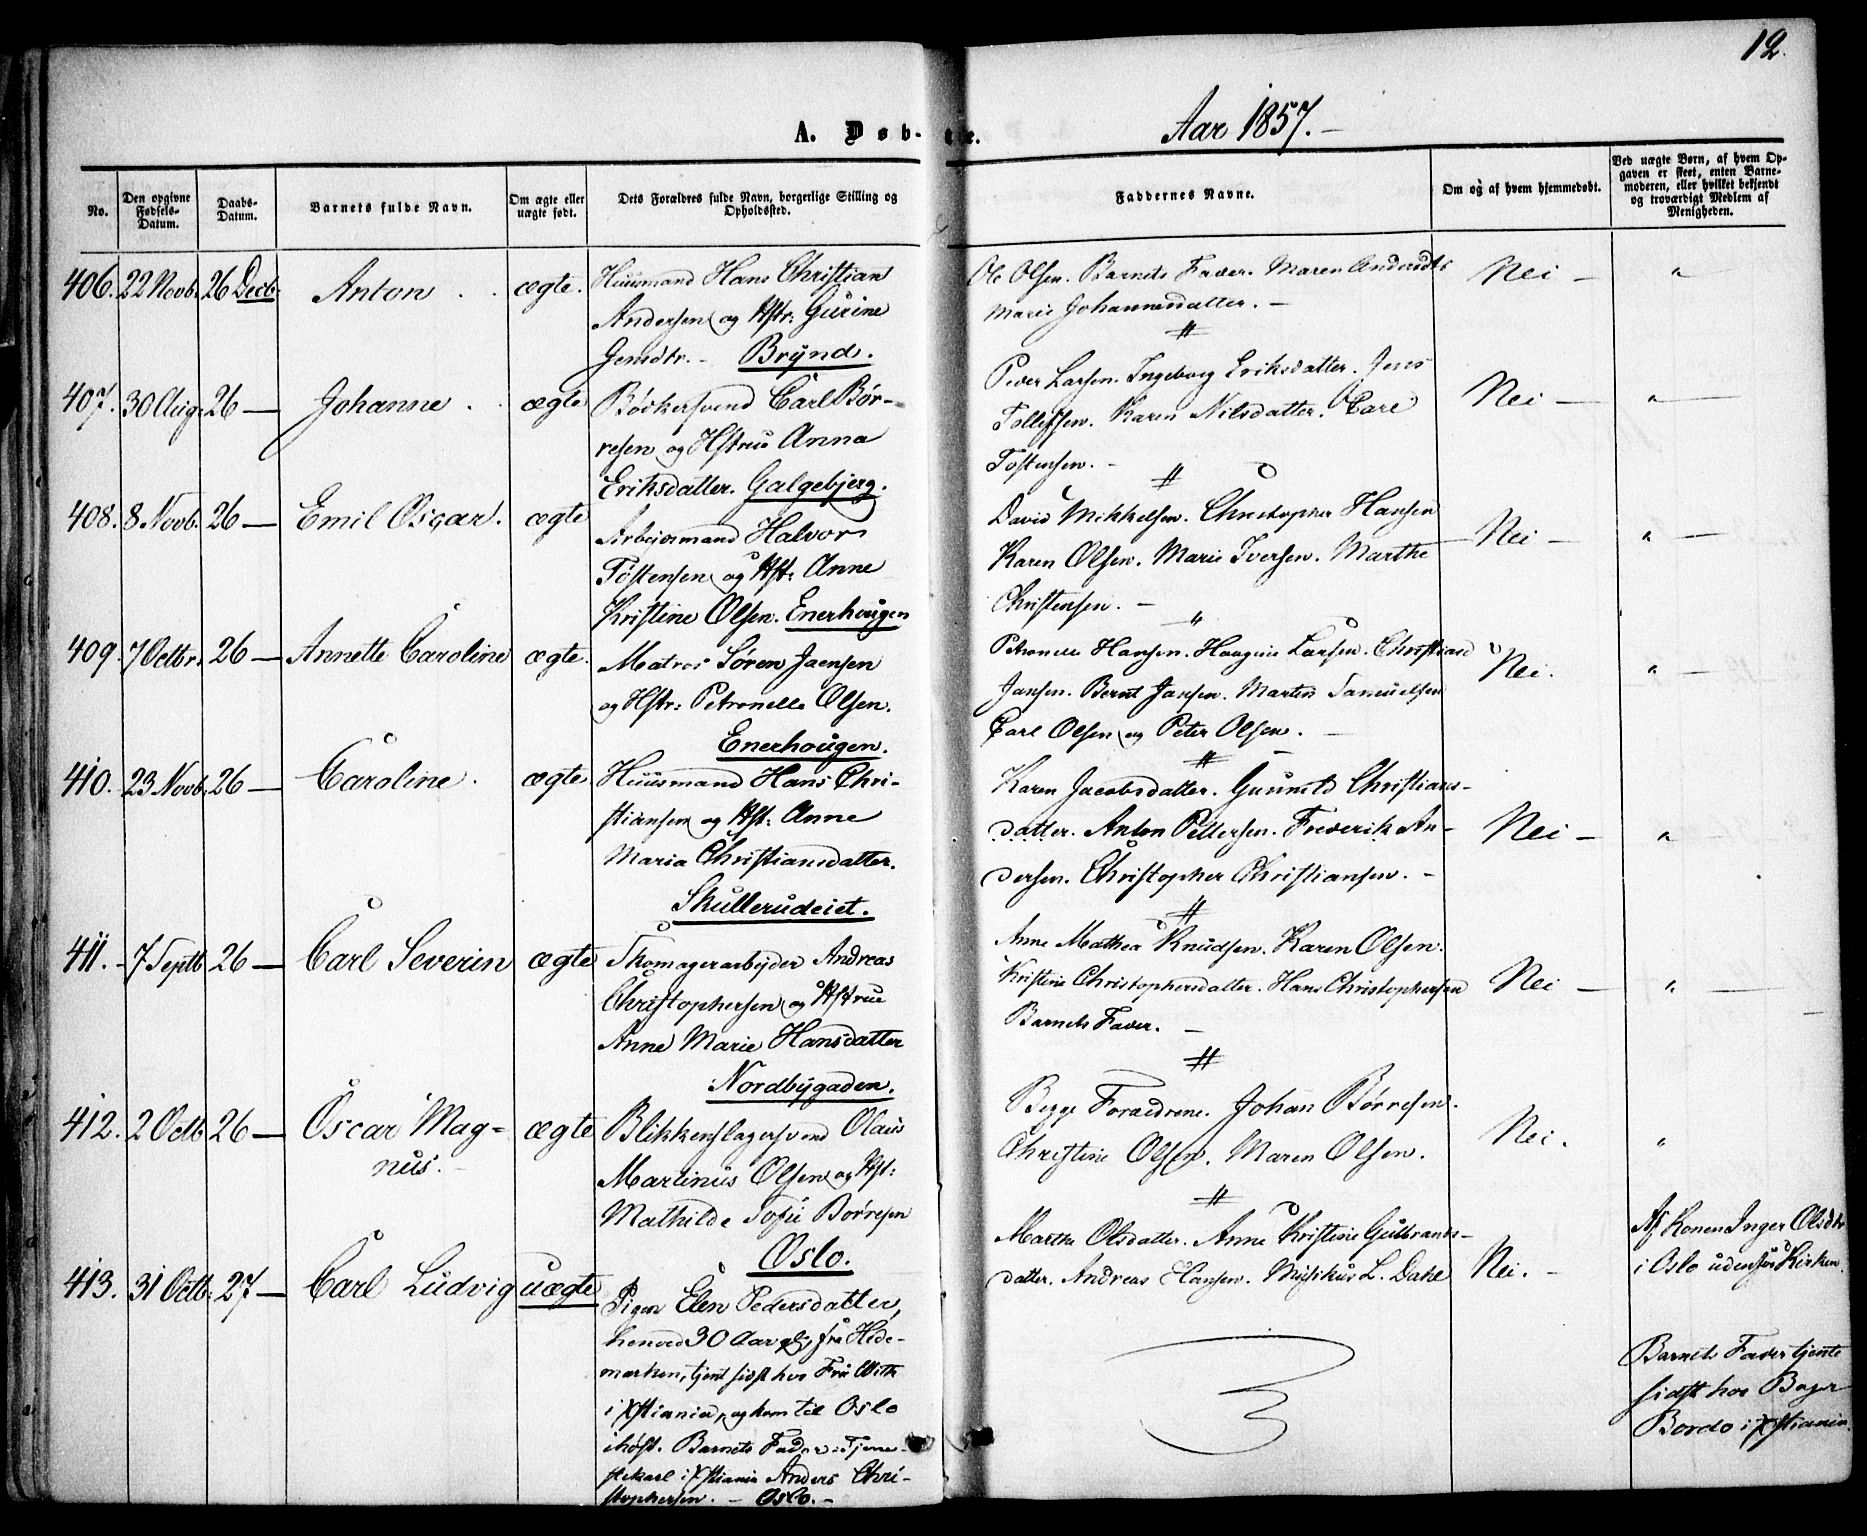 12.
A. Døb-te. Aar 1857.-
No.
Den opgivne Fødsels-Datum.
Daabs-Datum.
Barnets fulde Navn.
Om ægte eller uægte født.
Dets Forældres fulde Navn, borgerlige Stilling og Opholdssted.
Faddernes Navne.
Om og af hvem hjemmedøbt.
Ved uægte Børn, af hvem Opgaven er skeet, enten Barnemoderen, eller hvilket bekjendt og troværdigt Medlem af Menigheden.
406. 22 Novb. 26 Decb. Anton ægte.
Huusmand Hans Christian
Andersen og Hstr: Gurine
Jensdtr. - Brynd.
Ole Olsen. Barnets Fader. Maren
Marie Johannesdatter. -
Nei - "
407. 30 Aug. 26 - Johanne ægte
Bødkersvend Carl Bør-
resen og Hstrue Anna
Eriksdatter. Galgebjerg.
Peder Larsen. Ingeborg Eriksdatter. Jens
Tollefsen. Karen Nilsdatter. Carl
Tostensen. -
Nei - " -
408. 8 Novb. 26 - Emil Oscar. ægte
Arbejdsmand Halvor
Tostensen og Hst: Anne
Kristine Olsen. Enerhougen
David Mikkelsen. Christopher Hansen
Karen Olsen. Marie Iversen. Marthe
Christensen. -
Nei - " -
409. 7 Octbr. 26 - Annette Caroline ægte.
Matros Søren Jaensen
og Hstr: Petronelle Olsen.
Enerhougen.
Petronelle Hansen. Haagine Larsen. Christian
Jansen. Bernt Jansen. Martin Samuelsen
Carl Olsen og Peter Olsen. -
Nei. " -
410. 23 Novb. 26 - Caroline. ægte
Huusmand Hans Chri-
stiansen og Hst: Anne
Maria Christiansdatter.
Skullerudeiet.
Karen Jacobsdatter. Gunnild Christians-
datter. Anton Pettersen. Frederik An-
dersen. Christopher Christiansen. -
Nei - " -
411. - 7 Septb. 26 - Carl Severin ægte
Skomagerarbejder Andreas
Christophersen og Hstrue
Anne Marie Hansdatter
Nordbygaden.
Anne Mathea Knudsen. Karen Olsen.
Kristine Christophersdatter. Hans Christophersen
Barnets Fader. -
Nei - " -
412. 2 Octb. 26 - Oscar Mag-
nus. - ægte
Blikkenslagersvend Olaus
Martinus Olsen og Hst:
Mathilde Sofie Børresen
Oslo.
Begge Forældrene. Johan Børresen.
Christine Olsen. Maren Olsen.
Nei. "
413. 31 Octb. 27 - Carl Ludvig uægte
Pigen Elen Pedersdatter,
henved 30 Aar gl, fra Hede-
marken, tjent sidst hos Fru With
i Xstiania, og kom til Oslo
ihøst. Barnets Fader: Tjene-
stekarl i Xstiania Anders Chri-
stophersen. - Oslo. -
Marthe Olsdatter. Anne Kristine Gulbrands-
datter. Andreas Hansen. Musikus L. Dahl
Nei. -
Af Konen Inger Olsdtr
i Oslo udenfor Kirken.
Barnets Fader tjente
sidst hos Bager
Bordo i Xstiania.